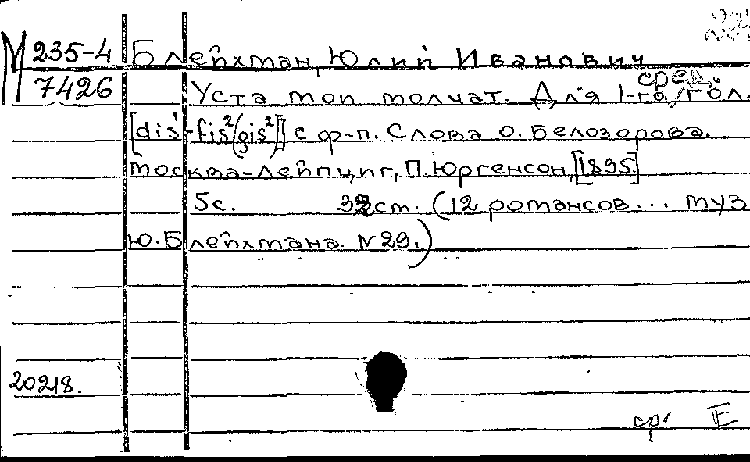 М 235-4 Блейхман, Юлий Иванович
7426 Уста мои молчат. Для 1-го сред. гол.
[dis¹-fis²(gis²)] с ф-п. Слова О. Белозорова.
Москва-Лейпциг, П. Юргенсон, [1895]
5с. 32см. (12 романсов... муз
Ю. Блейхмана. №29.)
20218.
ср. E